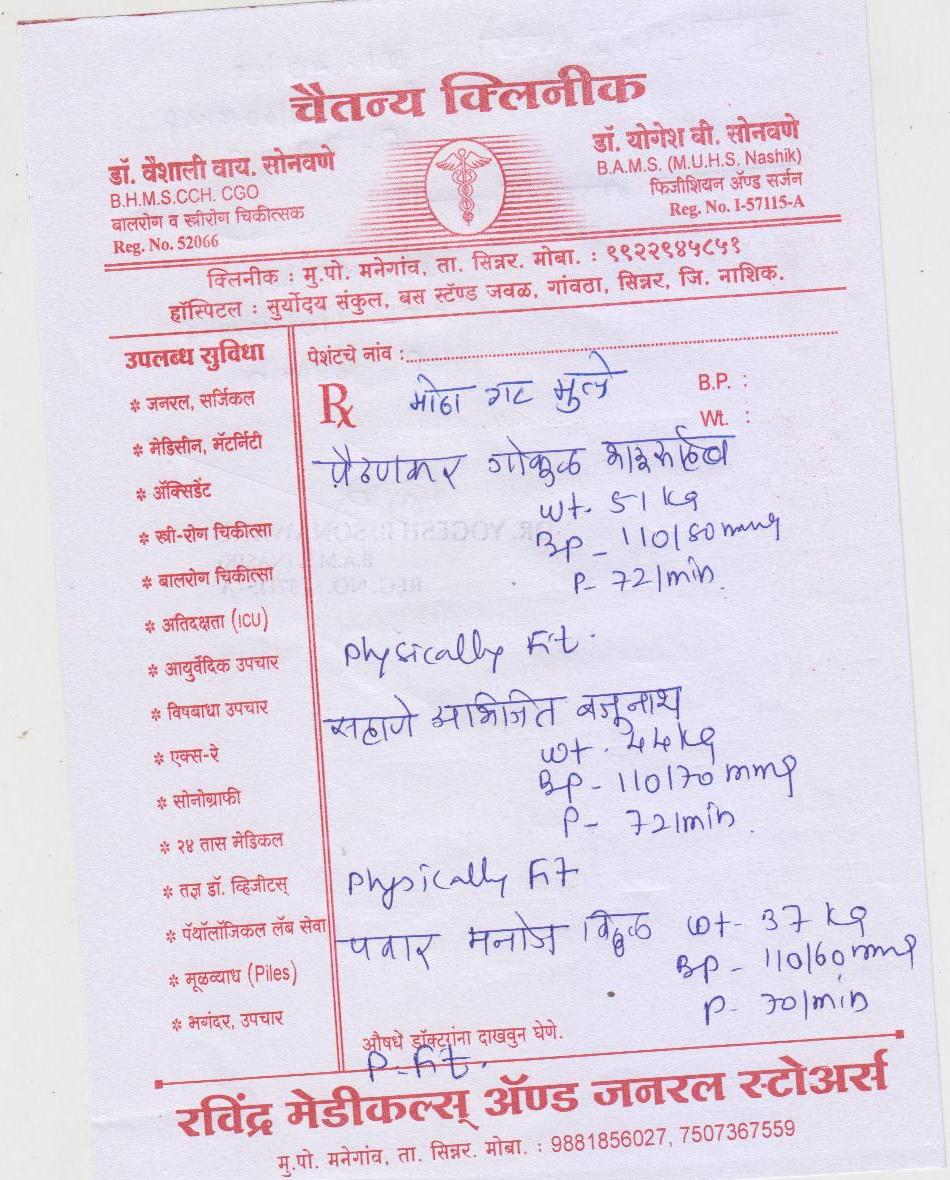 चैतन्य क्लिनीक
डॉ. वैशाली वाय. सोनवणे
B.H.M.S.CCH. CGO
बालरोग व स्त्रीरोग चिकीत्सक
Reg. No. 52066
डॉ. योगेश बी. सोनवणे
B.A.M.S. (M.U.H.S. Nashik)
फिजीशियन ॲण्ड सर्जन
Reg. No. I-57115-A
क्लिनीक : मु.पो. मनेगांव, ता. सिन्नर. मोबा. : ९९२२९४५८५१
हॉस्पिटल : सुर्योदय संकुल, बस स्टॅण्ड जवळ, गांवठा, सिन्नर, जि. नाशिक.
उपलब्ध सुविधा
* जनरल, सर्जिकल
* मेडिसीन, मॅटर्निटी
* ॲक्सिडेंट
* स्त्री-रोग चिकीत्सा
* बालरोग चिकीत्सा
* अतिदक्षता (ICU)
* आयुर्वेदिक उपचार
* विषबाधा उपचार
* एक्स-रे
* सोनोग्राफी
* २४ तास मेडिकल
* तज्ञ डॉ. व्हिजीटस्
* पॅथॉलॉजिकल लॅब सेवा
* मूळव्याध (Piles)
* भगंदर, उपचार
पेशंटचे नांव :
Rx मोठा गट मुले
B.P. :
Wt. :
पैठणकर गोकुळ भाऊसाहेब
wt. 51 kg
BP - 110/80 mmg
P- 72/min.
physically Fit.
सहाणे अभिजित बजुनाथ
wt. 44 kg
BP - 110/70 mmg
P- 72/min.
physically Fit
पवार मनोज wt- 37 kg
BP - 110/60 mmg
P- 70/min
औषधे डॉक्टरांना दाखवुन घेणे.
P-Fit.
रविंद्र मेडीकल्स् ॲण्ड जनरल स्टोअर्स
मु.पो. मनेगांव, ता. सिन्नर. मोबा. : 9881856027, 7507367559